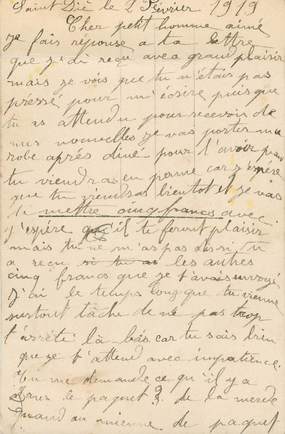 Saint Dié le 2 Février 1919
Cher petit homme aimé
je fais réponse a ta lettre
que j'ai reçu avec grand plaisir
mais je vois que tu n'étais pas
pressé pour m'écrire puisque
tu as attendu pour recevoir de
mes nouvelles je vas porter ma
robe après diné pour l'avoir
tu viendras en perme car j'espère
que tu viendras bientot et je vas
te mettre cinq francs avec
j'espère qu'il te feront plaisir
mais tu ne m'as pas dessi tu
a reçu si tu as les autres
cinq francs que je t'avais envoyé
j'ai le temps long que tu vienne
surtout tâche de ne pas trop
t'arrêté là bas car tu sais bien
que je t'attend avec impatience
Tu me demande ce qu'il y a
dans le paquet? de la merde
Quand au mienne de paquet